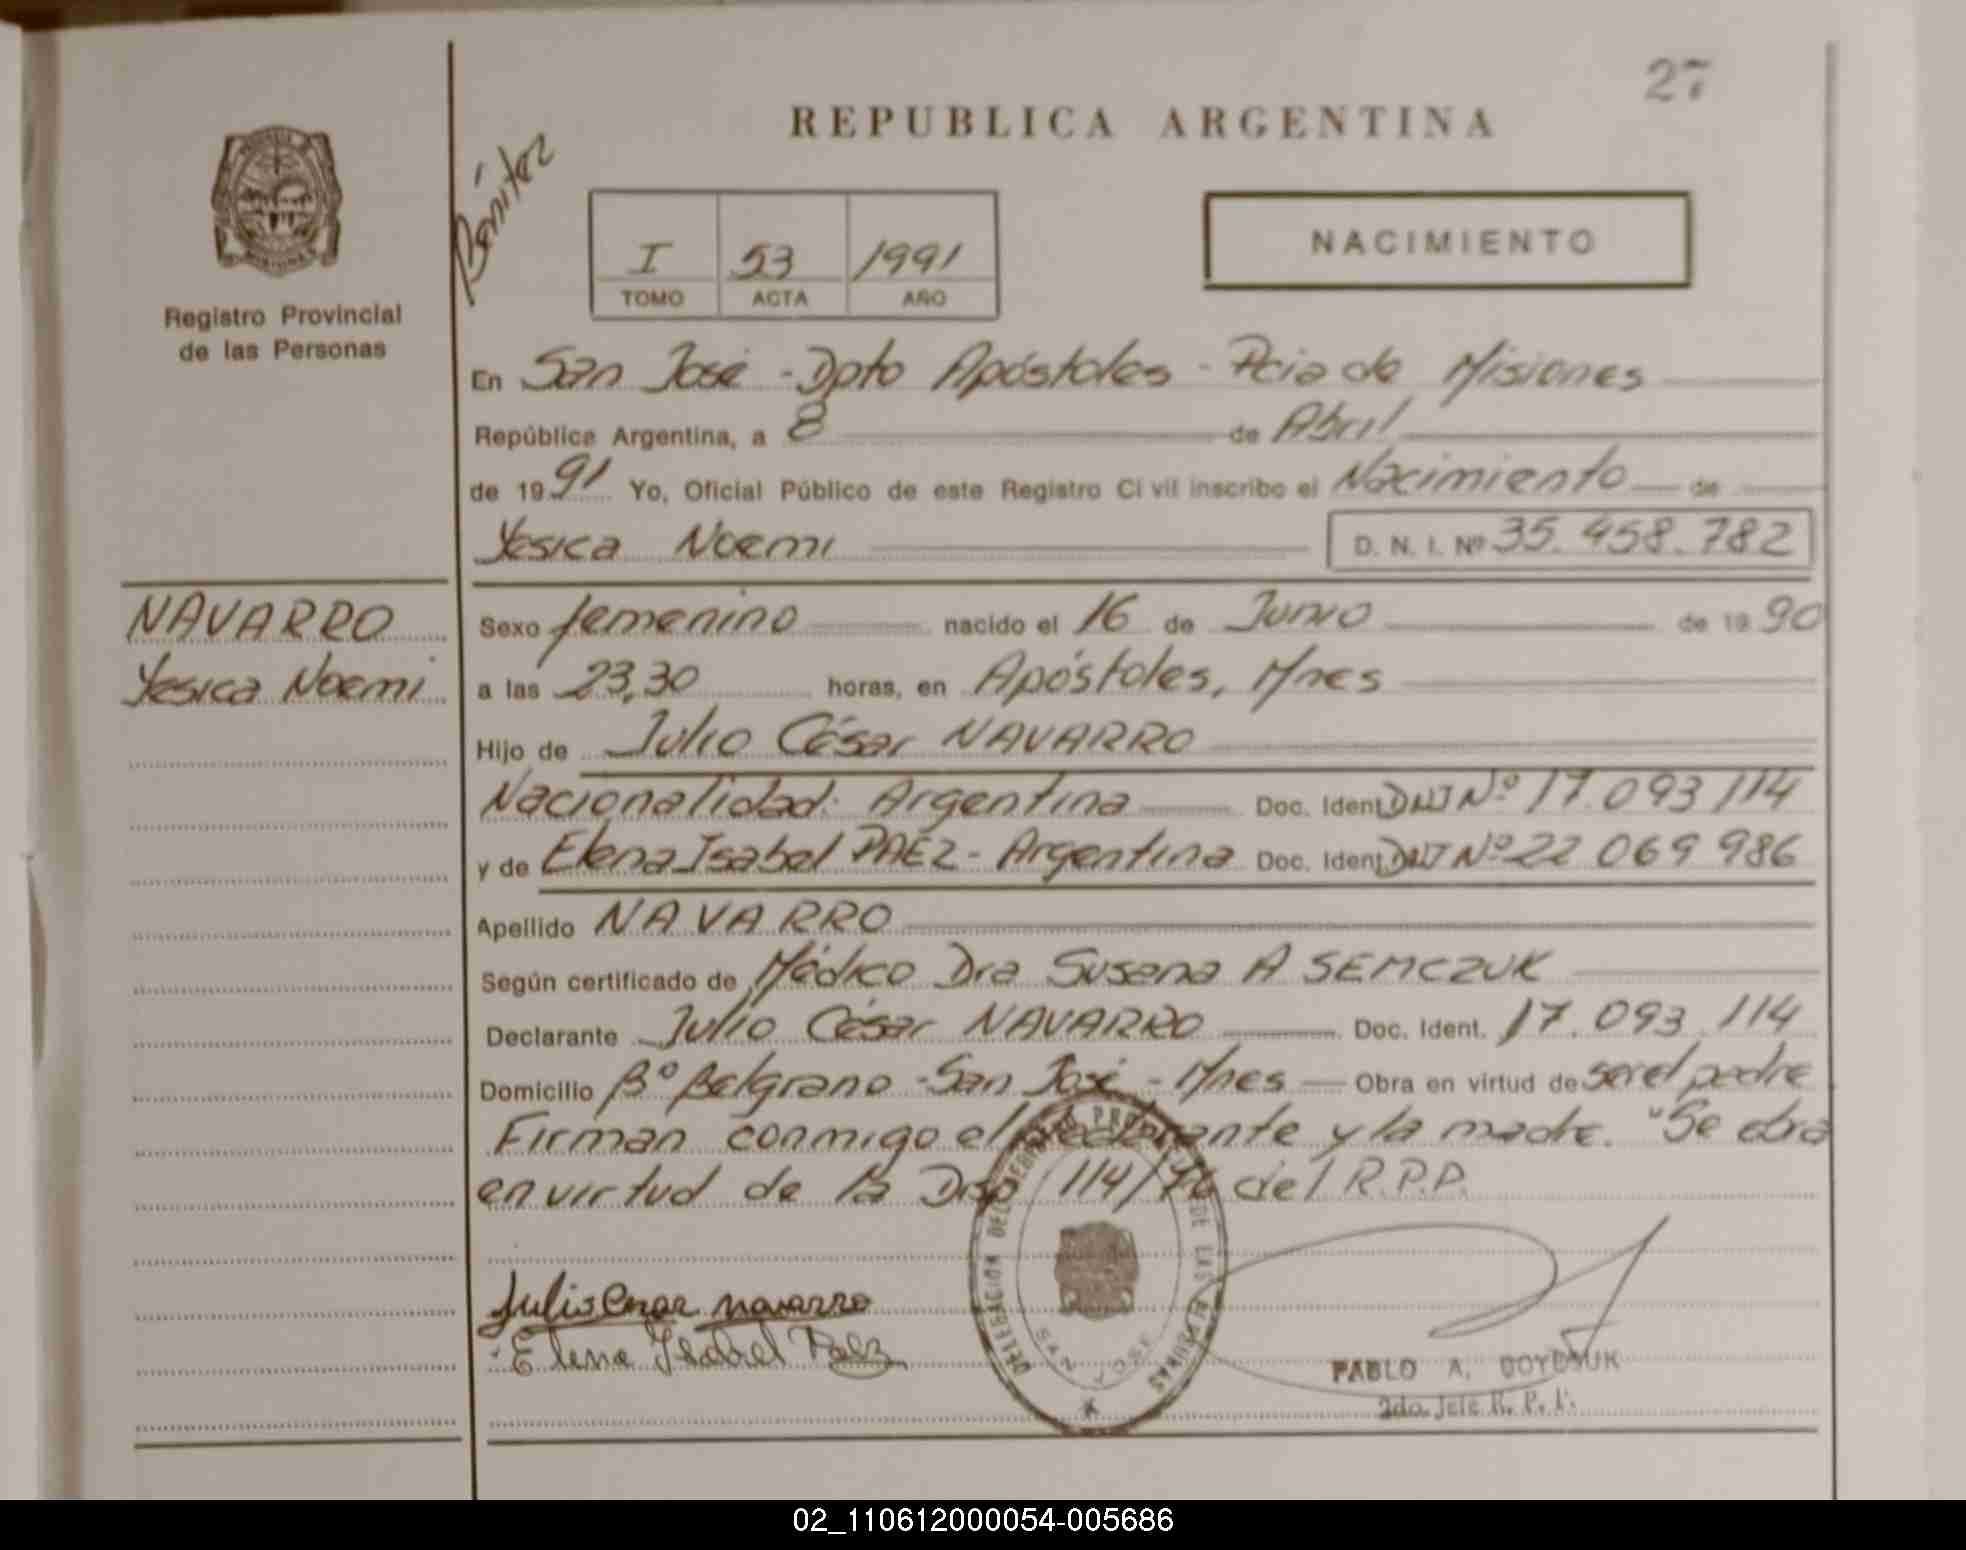 27
REPUBLICA ARGENTINA
Benítez
I 53 1991
TOMO ACTA AÑO
NACIMIENTO
Registro Provincial
de las Personas
En San José - Dpto Apóstoles - Pcia de Misiones
República Argentina, a 8 de Abril
de 1991 Yo, Oficial Público de este Registro Civil inscribo el Nacimiento de
Yesica Noemi D. N. I. Nº 35.458.782
NAVARRO
Yesica Noemi
Sexo femenino nacido el 16 de Junio de 1990
a las 23,30 horas, en Apóstoles, Mnes
Hijo de Julio César NAVARRO
Nacionalidad: Argentina Doc. Ident DNI Nº 17.093 114
y de Elena Isabel PAEZ - Argentina Doc. Ident DNI Nº 22 069 986
Apellido NAVARRO
Según certificado de Médico Dra Susana A SEMCZUK
Declarante Julio César NAVARRO Doc. Ident. 17.093.114
Domicilio Bº Belgrano - San José - Mnes Obra en virtud de ser el padre
Firman conmigo el declarante y la madre. "Se obra
en virtud de la Disp 114/76 del R.P.P.
Julio Cesar navarro
Elena Isabel Paez
DELEGACION DEL REGISTRO PROVINCIAL DE LAS PERSONAS
SAN JOSE
PABLO A.
2do. Jefe R. P. P.
02_110612000054-005686